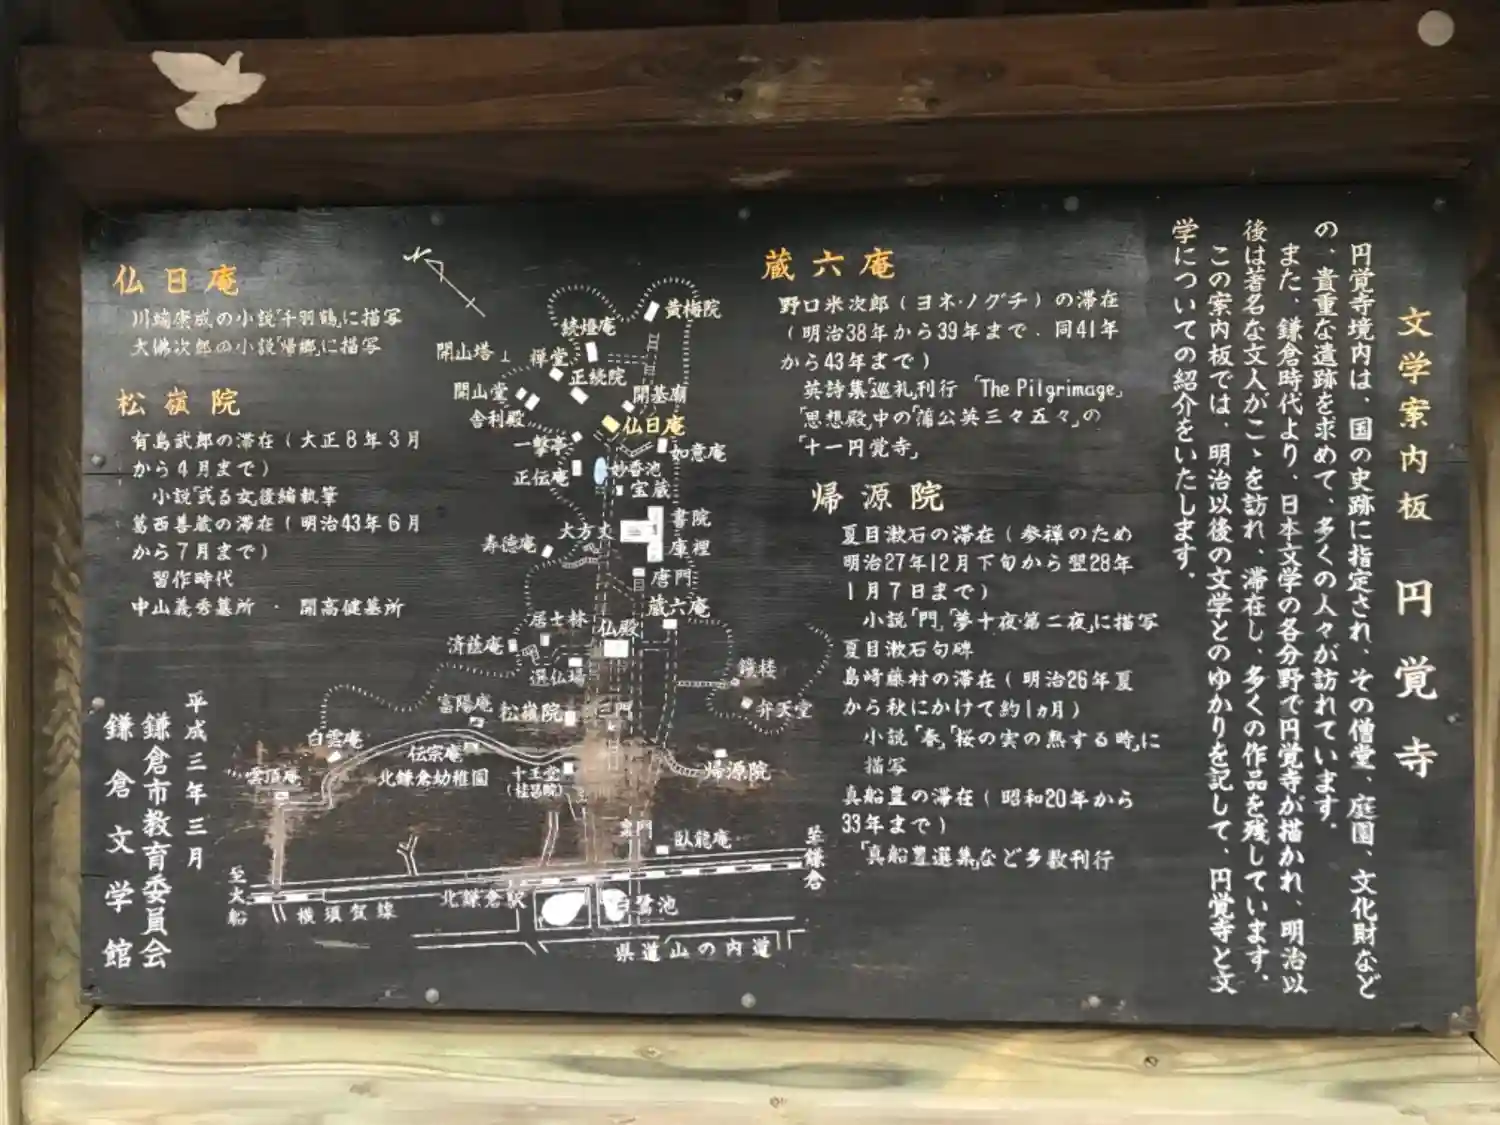 文学案内板　円覚寺
円覚寺境内は、国の史跡に指定され、その僧堂、庭園、文化財など
の、貴重な遺跡を求めて、多くの人々が訪れています.
また、鎌倉時代より、日本文学の各分野で円覚寺が描かれ、明治以
後は著名な文人がこゝを訪れ、滞在し、多くの作品を残しています.
この案内板では、明治以後の文学とのゆかりを記して、円覚寺と文
学についての紹介をいたします.
蔵六庵
野口米次郎(ヨネ・ノグチ)の滞在
(明治38年から39年まで.同41年
から43年まで)
英詩集「巡礼」刊行「The Pilgrimage」
「思想殿」中の「蒲公英三々五々」の
「十一円覚寺」
帰源院
夏目漱石の滞在(参禅のため
明治27年12月下旬から翌28年
1月7日まで)
小説「門」「夢十夜・第二夜」に描写
夏目漱石句碑
島崎藤村の滞在(明治26年夏
から秋にかけて約1ヵ月)
小説「春」「桜の実の熟する時」に
描写
真船豊の滞在(昭和20年から
33年まで)
「真船豊選集」など多数刊行
仏日庵
川端康成の小説「千羽鶴」に描写
大佛次郎の小説「帰郷」に描写
松嶺院
有島武郎の滞在(大正8年3月
から4月まで)
小説「或る女」後編執筆
葛西善蔵の滞在(明治43年6月
から7月まで)
習作時代
中山義秀墓所・開高健墓所
N
黄梅院
続燈庵
開山塔
禅堂
正続院
開山堂
開基廟
舎利殿
仏日庵
一撃亭
如意庵
正伝庵
妙香池
宝蔵
書院
大方丈
庫裡
寿徳庵
唐門
蔵六庵
居士林
仏殿
済蔭庵
選仏場
鐘楼
富陽庵
松嶺院
三門
弁天堂
白雲庵
伝宗庵
帰源院
雲頂庵
北鎌倉幼稚園
十王堂
(桂昌院)
総門
臥龍庵
至鎌倉
至大船
北鎌倉駅
横須賀線
白鷺池
県道山の内道
平成三年三月
鎌倉市教育委員会
鎌倉文学館